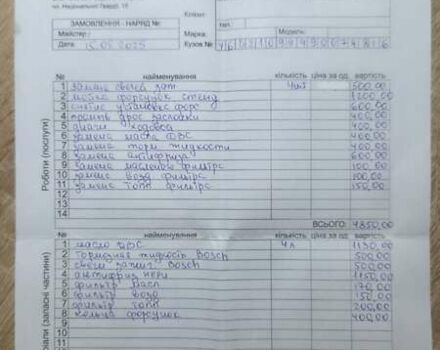 пл. Національної Гвардії, 15
Клієнт:
тел.
ЗАМОВЛЕННЯ - НАРЯД №:
Майстер:
Марка:
Модель:
Дата: 15.05.2025
Кузов №
№ найменування кількість ціна за од. вартість
Роботи (послуги)
1 замена свечей заж 4шт 500,00
2 мойка форсунок стенд 1200,00
3 снятие установка форс 600,00
4 промыв дрос заслонки 400,00
5 диагн ходовой 400,00
6 замена масла ДВС 400,00
7 замена торм жидкости 400,00
8 замена антифриза 600,00
9 замена масленого фильтра 100,00
10 замена возд фильтра 100,00
11 замена топл фильтра 150,00
12
13
14
ВСЬОГО: 4850,00
№ найменування кількість ціна за од. вартість
(запасні частини)
1 масло ДВС 4л 1130,00
2 тормозная жидкость Bosch 500,00
3 свечи зажиг. Bosch 500,00
4 антифриз 1150,00
5 фильтр масл 170,00
6 фильтр возд 150,00
7 фильтр топл 200,00
8 кольца форсунок 400,00